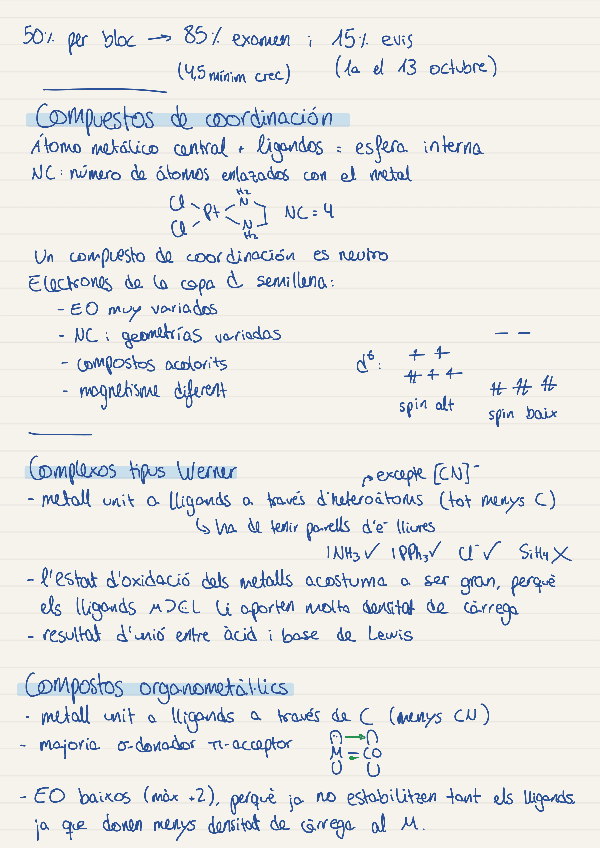 50% per bloc → 85% examen i 15% evis
(4,5 mínim crec) (1a el 13 octubre)
Compuestos de coordinación
Átomo metálico central + ligandos = esfera interna
NC: número de átomos enlazados con el metal
Cl Cl Pt H₂ N N H₂ NC = 4
Un compuesto de coordinación es neutro
Electrones de la capa d semillena:
- EO muy variados
- NC i geometrías variadas
- compostos acolorits
- magnetisme diferent
d⁶:
spin alt spin baix
Complexos tipus Werner
excepte [CN]⁻
- metall unit a lligands a través d'heteroàtoms (tot menys C)
↳ ha de tenir parells d'e⁻ lliures
|NH₃ ✓ |PPh₃ ✓ Cl⁻ ✓ SiH₄ X
- l'estat d'oxidació dels metalls acostuma a ser gran, perquè
els lligands M⊃CL li aporten molta densitat de càrrega
- resultat d'unió entre àcid i base de Lewis
Compostos organometàl·lics
- metall unit a lligands a través de C (menys CN)
- majoria σ-donador π-acceptor
M = CO
- EO baixos (màx +2), perquè ja no estabilitzen tant els lligands
ja que donen menys densitat de càrrega al M.